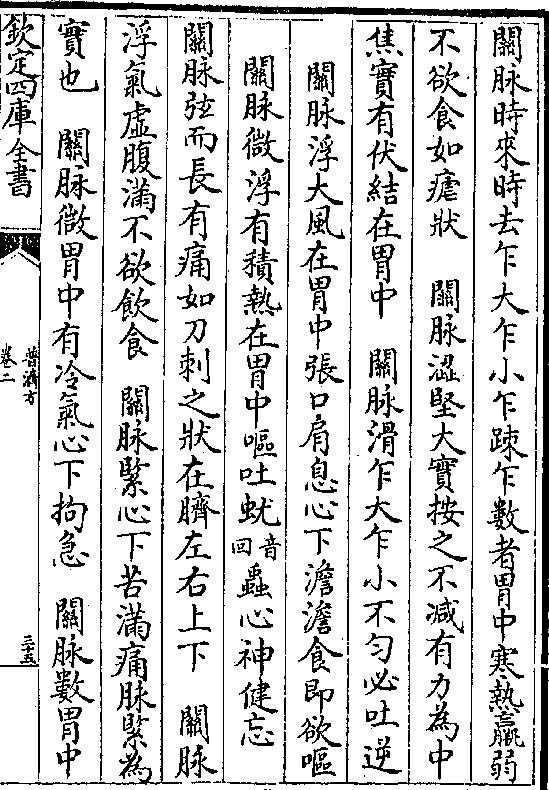 關脉時來時去乍大乍小乍踈乍數者胃中寒熱羸弱
不欲食如瘧狀　關脉澀堅大實按之不減有力為中
焦實有伏結在胃中　關脉滑乍大乍小不匀必吐逆
關脉浮大風在胃中張口肩息心下澹澹食即欲嘔
關脉微浮有積熱在胃中嘔吐蚘音回蟲心神健忘
關脉弦而長有痛如刀刺之狀在臍左右上下　關脉
浮氣虚腹滿不欲飲食　關脉緊心下苦滿痛脉緊為
實也　關脉微胃中有冷氣心下拘急　關脉數胃中
欽定四庫全書
普濟方
卷二
三十五